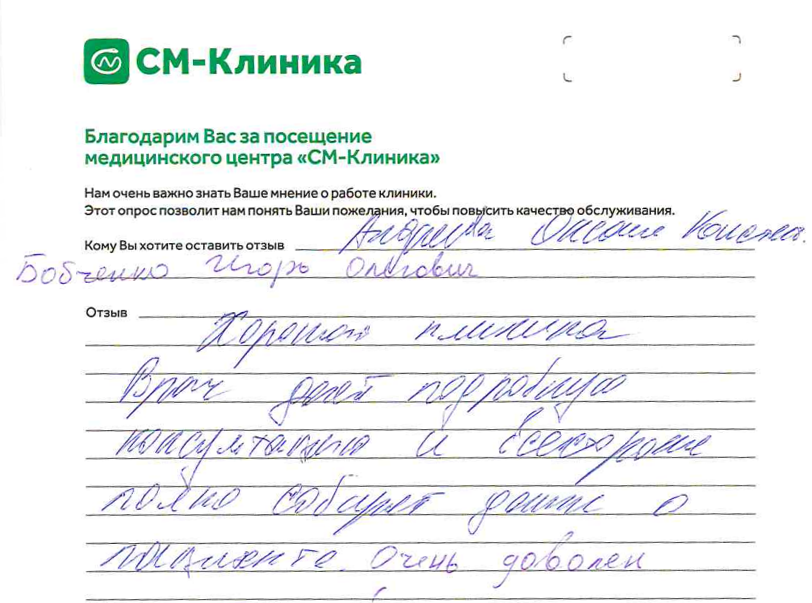 СМ-Клиника
Благодарим Вас за посещение
медицинского центра «СМ-Клиника»
Нам очень важно знать Ваше мнение о работе клиники.
Этот опрос позволит нам понять Ваши пожелания, чтобы повысить качество обслуживания.
Кому Вы хотите оставить отзыв Андреева Оксана
Бобченко Игорь Олегович
Отзыв
Хорошая клиника
Врач дает подробную
консультацию и всесторонне
полно собирает данные о
пациенте. Очень доволен